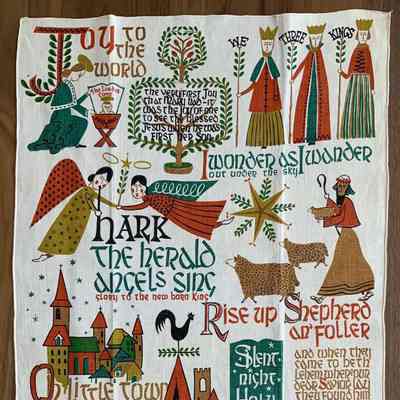 Joy to
the
world
The Lord is
Come
WE THREE KINGS
The very first Joy
that Mary had - it
was the joy of one
to see the blessed
Jesus when he was
first her Son
I wonder as I wander
out under the sky
HARK
The herald
angels sing
glory to the new born king
Rise up Shepherd
an' foller
Oh little town
Silent
night
Holy
and when they
came to beth
lehem where our
dear Savior lay
they found him